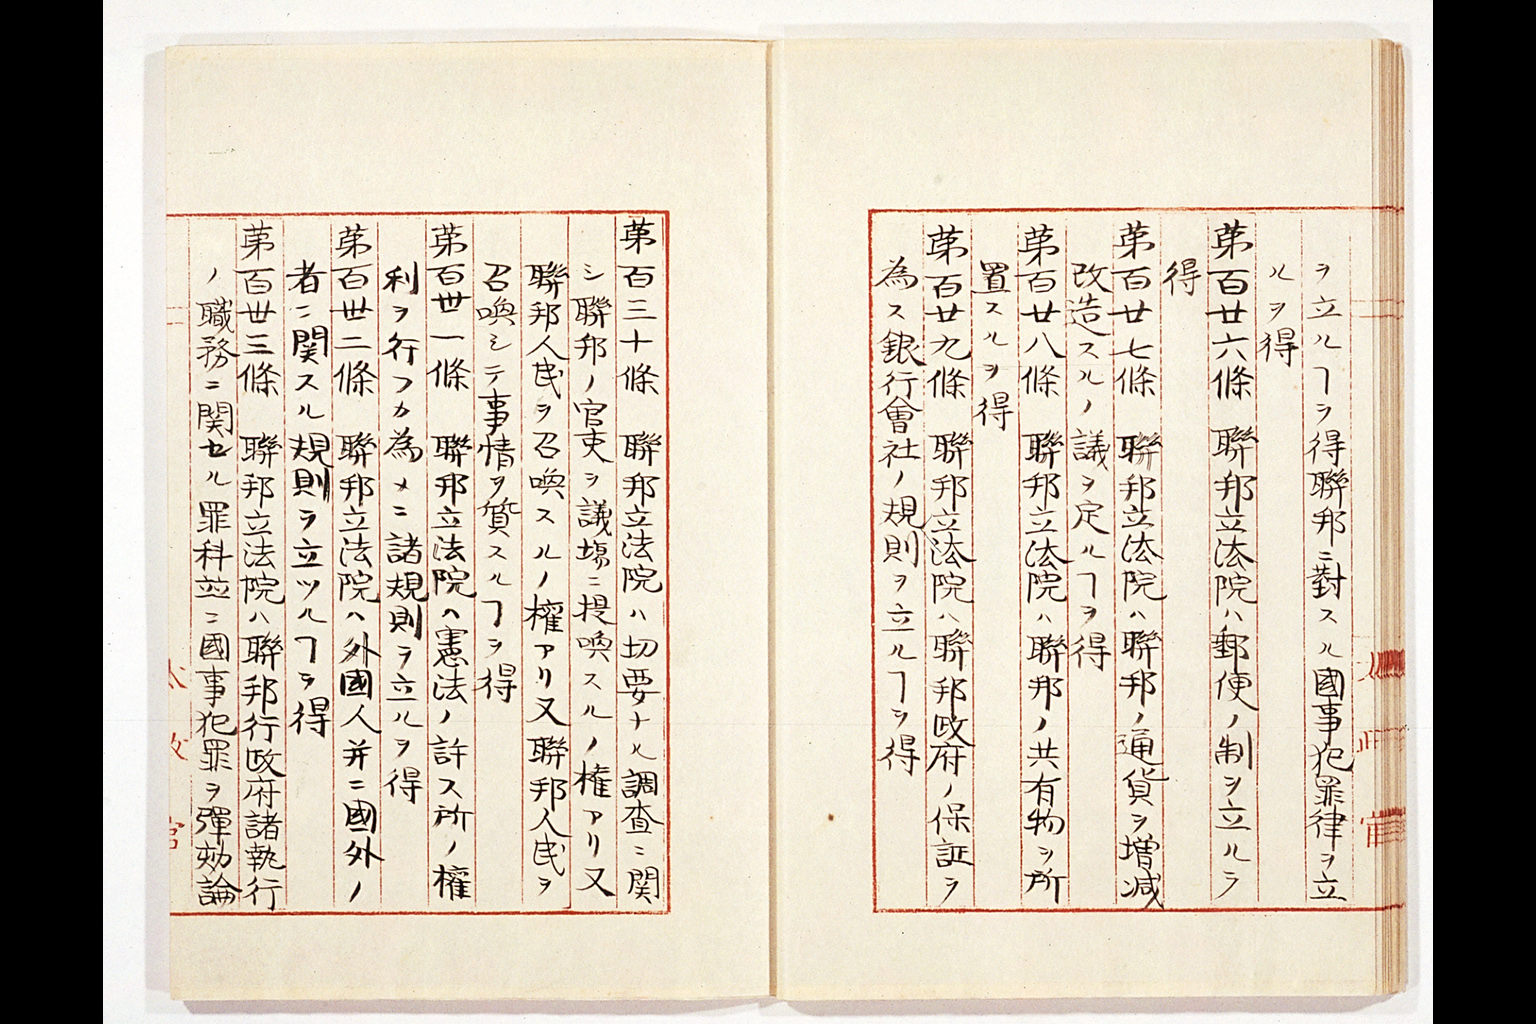 ヲ立ルヿヲ得聯邦ニ對スル國事犯罪律ヲ立
ルヲ得
第百廿六條 聯邦立法院ハ郵便ノ制ヲ立ルヲ
得
第百廿七條 聯邦立法院ハ聯邦ノ通貨ヲ増減
改造スルノ議ヲ定ルヿヲ得
第百廿八條 聯邦立法院ハ聯邦ノ共有物ヲ所
置スルヲ得
第百廿九條 聯邦立法院ハ聯邦政府ノ保証ヲ
為ス銀行會社ノ規則ヲ立ルヿヲ得
第百三十條 聯邦立法院ハ切要ナル調査ニ関
シ聯邦ノ官吏ヲ議塲ニ提喚スルノ権アリ又
聯邦人民ヲ召喚スルノ権アリ又聯邦人民ヲ
召喚シテ事情ヲ質スルヿヲ得
第百丗一條 聯邦立法院ハ憲法ノ許ス所ノ権
利ヲ行フカ為メニ諸規則ヲ立ルヲ得
第百丗二條 聯邦立法院ハ外國人并ニ國外ノ
者ニ関スル規則ヲ立ツルヿヲ得
第百丗三條 聯邦立法院ハ聯邦行政府諸執行
ノ職務ニ関セル罪科並ニ國事犯罪ヲ彈劾論
太政官